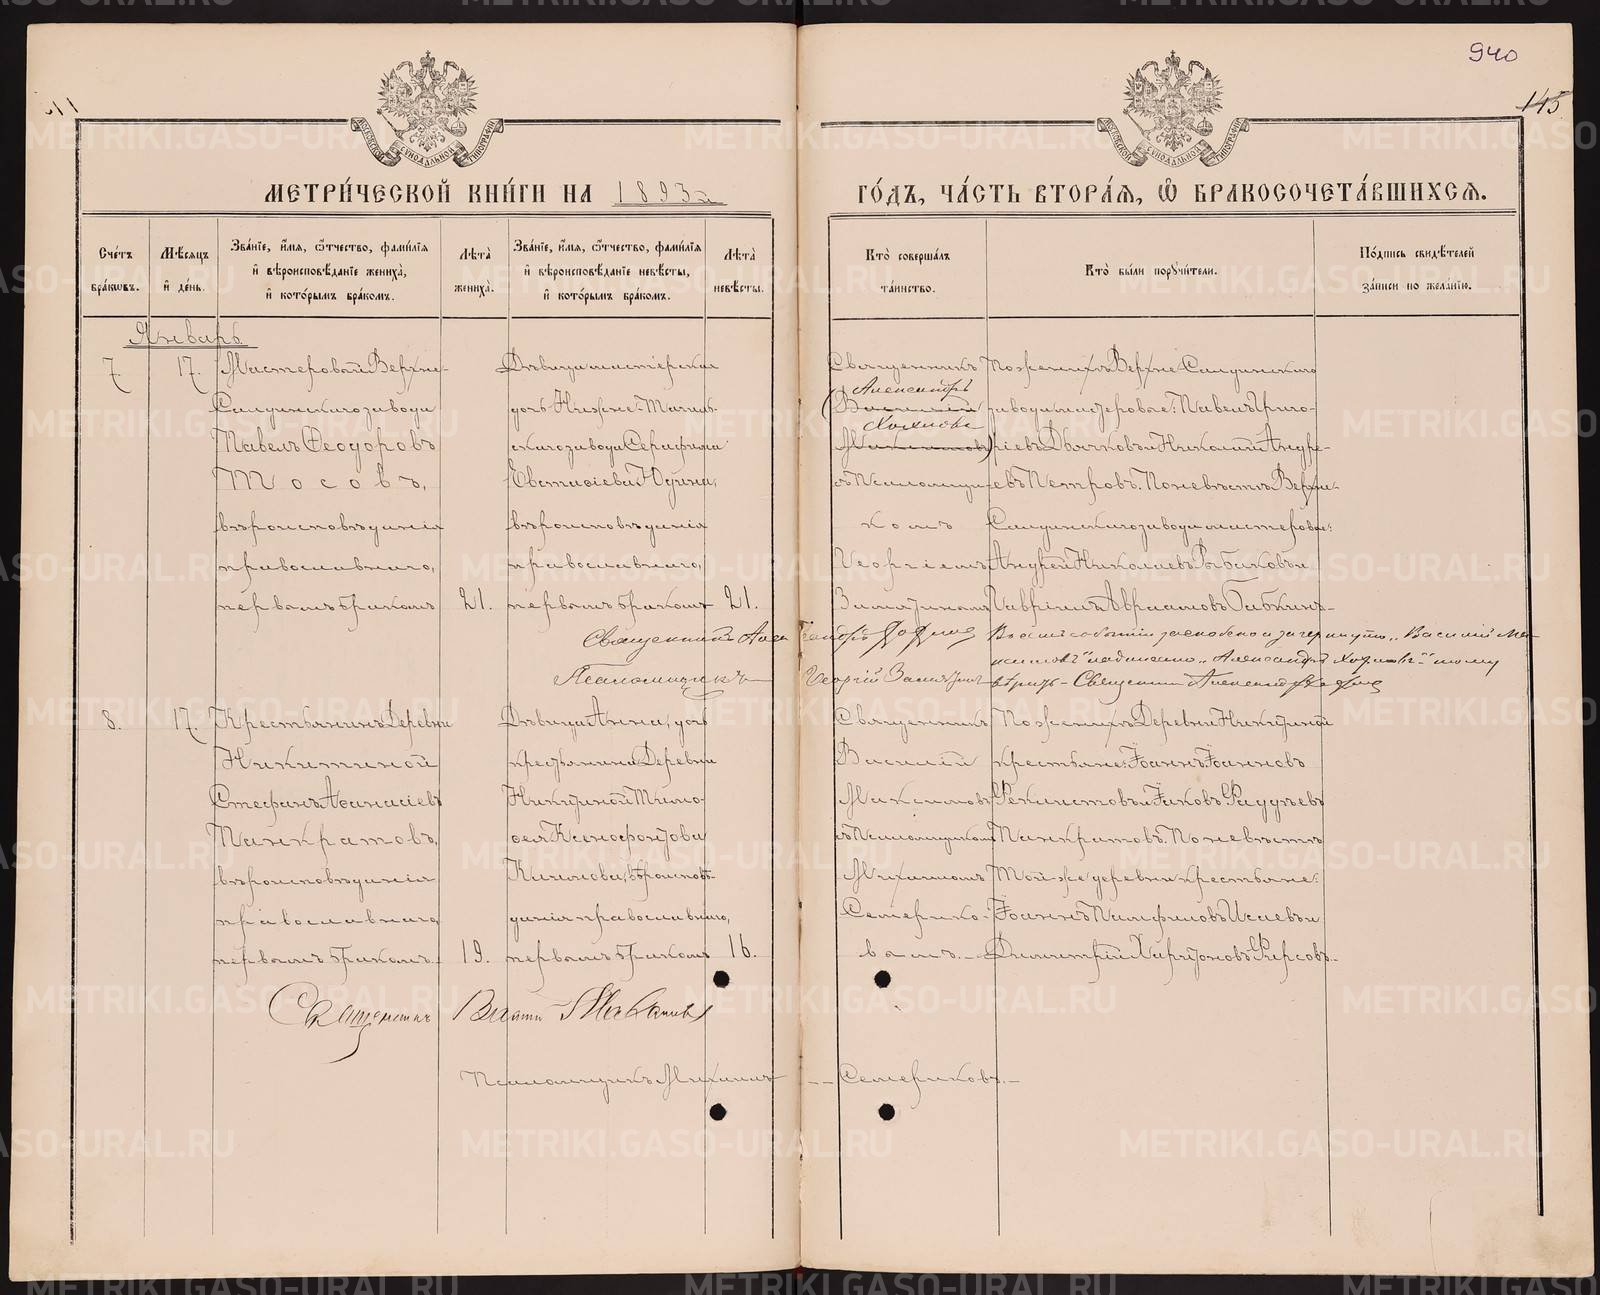 940
145
МОСКОВСКОЙ СѴНОДАЛЬНОЙ ТИПОГРАФІИ
МОСКОВСКОЙ СѴНОДАЛЬНОЙ ТИПОГРАФІИ
МЕТРИ́ЧЕСКОЙ КНИ́ГИ НА 1893й
ГО́ДЪ, ЧА́СТЬ ВТОРА́Я, Ѽ БРАКОСОЧЕТА́ВШИХСЯ.
Сче́тъ бра́кѡвъ.
Мѣ́сяцъ и҆ де́нь.
Зва́нїе, и҆́мя, ѻ҆́тчество, фами́лїя и҆ вѣроисповѣ́данїе жениха̀, и҆ кото́рымъ бра́комъ.
Лѣ́та жениха̀.
Зва́нїе, и҆́мя, ѻ҆́тчество, фами́лїя и҆ вѣроисповѣ́данїе невѣ́сты, и҆ кото́рымъ бра́комъ.
Лѣ́та невѣ́сты.
Кто̀ соверша́лъ та́инство.
Кто̀ бы́ли порꙋчи́тели.
По́дпись свидѣ́телей за́писи по жела́нїю.
Январь
7.
17.
Мастеровой Верхне-
Салдинскаго завода
Павелъ Ѳеодоровъ
Тосовъ,
вѣроисповѣданія
православнаго,
первымъ бракомъ
21.
Дѣвица мастерская
дочь Нижне-Тагиль-
скаго завода Серафима
Евстафіева Юдина,
вѣроисповѣданія
православнаго,
первымъ бракомъ
21.
Священникъ
Александръ
(Василій
Хохловъ
Макsимовъ)
съ Псаломщи-
комъ
Георгіемъ
Замятинымъ
По женихѣ Верхне-Салдинскаго
завода мастеровые: Павелъ Григо-
ріевъ Дьячковъ и Николай Андре-
евъ Петровъ. По невѣстѣ Верхне-
Салдинскаго завода мастеровые:
Андрей Николаевъ Рыбаковъ и
Гавріилъ Авраамовъ Бабкинъ.
Священникъ Александръ Хохловъ
Псаломщикъ Георгій Замятинъ
Въ семъ событіи заскоблено и зачеркнуто „Василій Ма-
ксимовъ" надписано „Александръ Хохловъ" тому
вѣрить - Священникъ Александръ Хохловъ
8.
17.
Крестьянинъ Деревни
Никитиной
Стефанъ Аѳанасіевъ
Панкратовъ,
вѣроисповѣданія
православнаго,
первымъ бракомъ.
19.
Дѣвица Анна, дочь
крестьянина Деревни
Никитиной Тимо-
ѳея Ксенофонтова
вѣроисповѣ-
данія православнаго,
первымъ бракомъ
16.
Священникъ
Василій
Максимовъ
съ Псаломщикомъ
Михаиломъ
Семерико-
вымъ.
По женихѣ Деревни Никитиной
крестьяне: Іоаннъ Іоанновъ
Феклистовъ и Іаковъ Фаддѣевъ
Панкратовъ. По невѣстѣ
Той-же деревни крестьяне:
Іоаннъ Памфиловъ Исаевъ и
Димитрій Харитоновъ Фирсовъ.
Священникъ
Псаломщикъ Михаилъ Семериковъ.